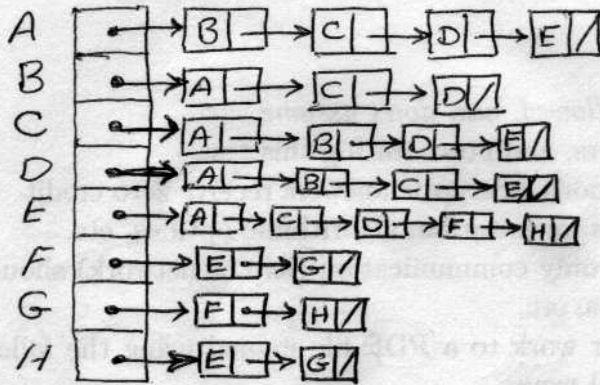 A B C D E
B A C D
C A B D E
D A B C E
E A C D F H
F E G
G F H
H E G